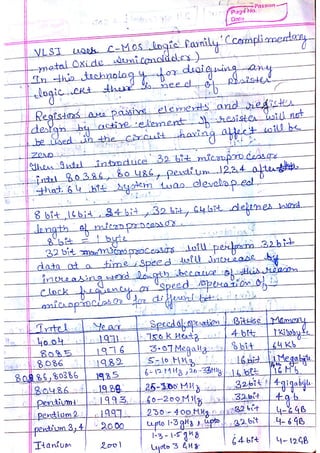 Passion
Page No.
Date:
VLSI uses C-MOS logic family (complimentary
-matal oxide semiconductor)
In this technology for designing any
logic ckt there is need of resistor
Registors are passive elements and register
design by active element If resister will not
be used in the circuit having affect will be
zero.
Then Intel introduce 32 bit microprocessor
intel 80386, 80486, pentium 1234 after
that 64 bit system was developed
8 bit, 16 bit, 24 bit, 32 bit, 64 bit defines word
length of microprocessor.
8 bit = 1 byte
32 bit microprocessor will perform 32 bit
data at a time, speed will increase by
increasing word length because of this reason
clock frequency or speed operation of
microprocessor for different bit.
Intel Year Speed of operation Bitwise Memory
4004 1971 750 K Hertz 4 bit 1 Kilobyte
8085 1976 3-07 MegaHz 8 bit 64 Kb
8086 1982 5-10 MHz 16 bit 1 Megabyte
80286, 80386 1985 6-12 MHz, 20-33MHz 16 bit 16 Mb
80486 1989 25-100 MHz 32 bit 4 gigabyte
Pentium1 1993 60-200 MHz 32 bit 4 gb
pentium2 1997 230-400 MHz 32 bit 4-6 GB
pentium 3,4 2000 upto 1.3 gHz, upto 32 bit 4-6 GB
1.3-1.5 gHz
Itanium 2001 upto 3 GHz 64 bit 4-12GB